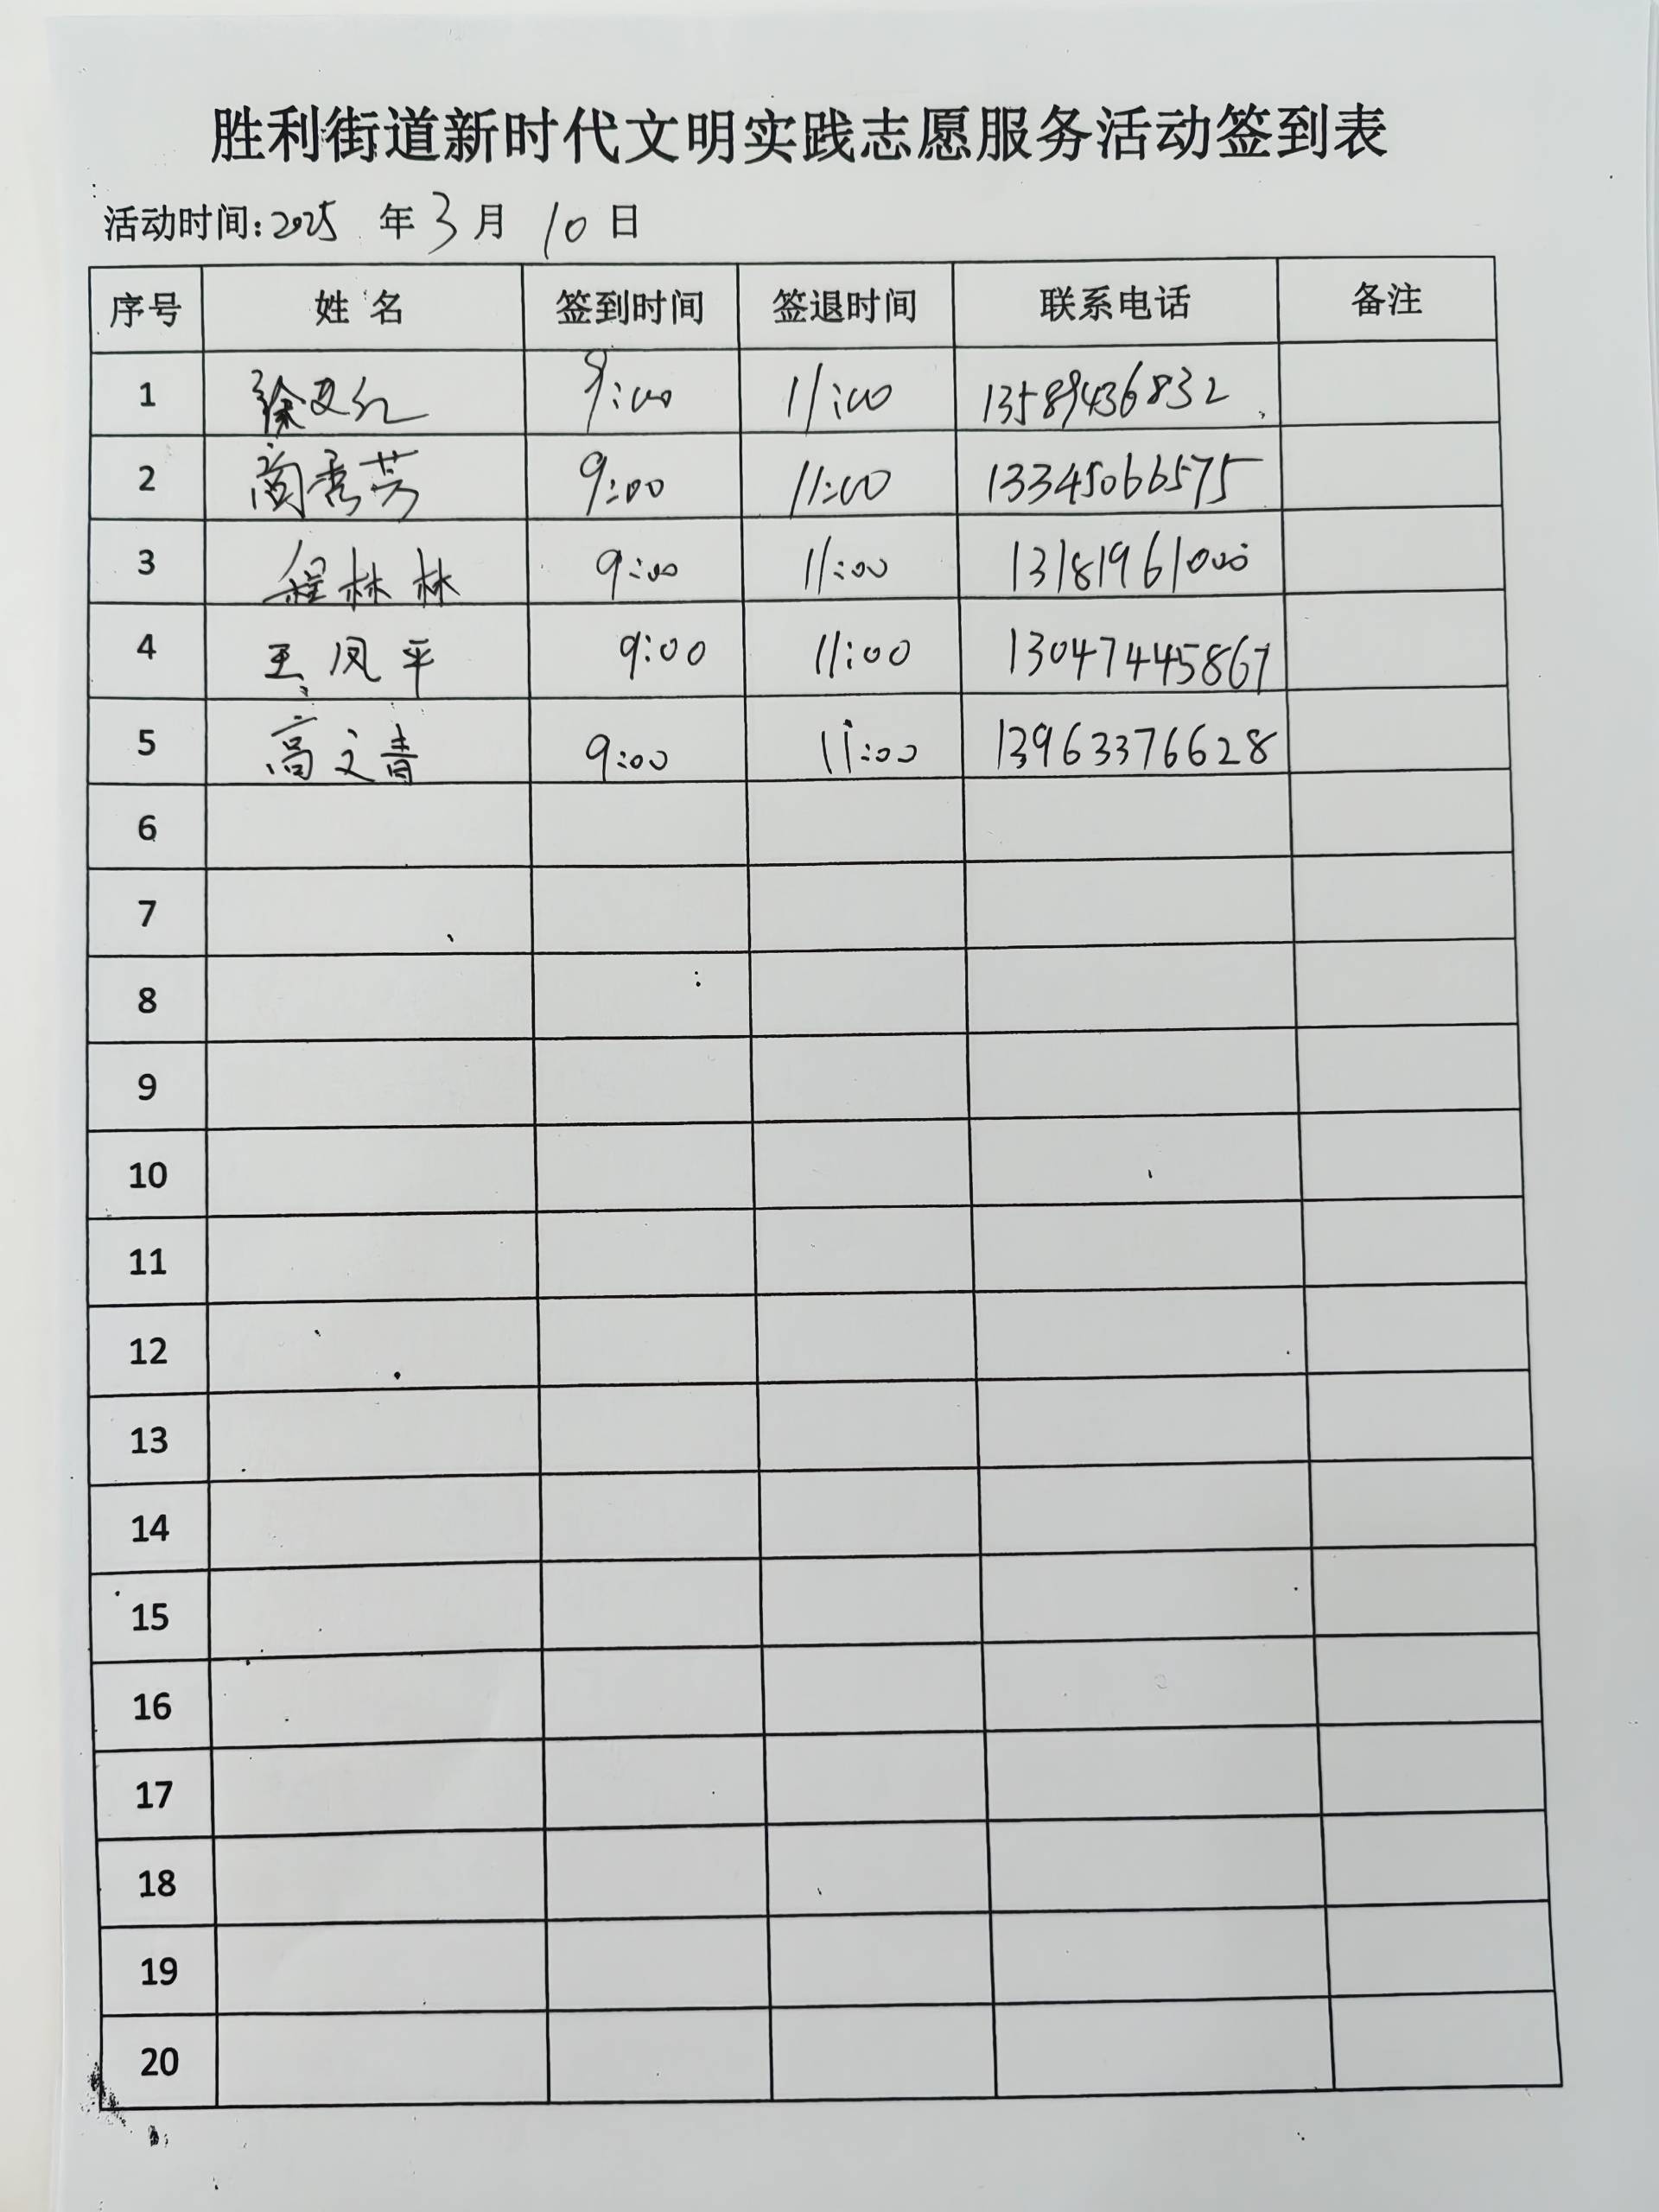 胜利街道新时代文明实践志愿服务活动签到表
活动时间:2025 年 3 月 10 日
序号 姓名 签到时间 签退时间 联系电话 备注
1 徐艾红 9:00 11:00 13589436832
2 阎秀芳 9:00 11:00 13345066575
3 程林林 9:00 11:00 13181961000
4 王凤平 9:00 11:00 13047445867
5 高文青 9:00 11:00 13963376628
6
7
8
9
10
11
12
13
14
15
16
17
18
19
20